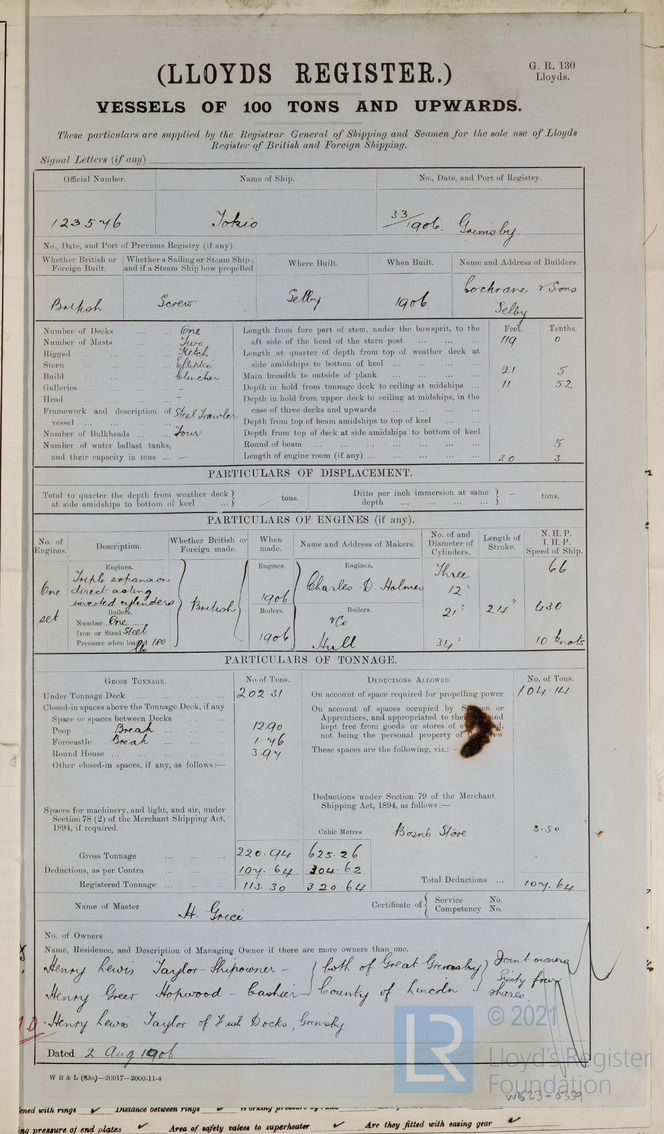 (LLOYDS REGISTER.)
G. R. 130
Lloyds.
VESSELS OF 100 TONS AND UPWARDS.
These particulars are supplied by the Registrar General of Shipping and Seamen for the sole use of Lloyds
Register of British and Foreign Shipping.
Signal Letters (if any)
Official Number. Name of Ship. No., Date, and Port of Registry.
123546 Tokio 33/1906. Grimsby
No., Date, and Port of Previous Registry (if any).
Whether British or Foreign Built. Whether a Sailing or Steam Ship; and if a Steam Ship how propelled. Where Built. When Built. Name and Address of Builders.
British Screw Selby 1906. Cochrane & Sons
Selby
Feet. Tenths.
Number of Decks ... ... One
Number of Masts ... ... Two
Rigged ... ... Ketch
Stern ... ... Elliptic
Build ... ... Clincher
Galleries ... ...
Head ... ... -
Framework and description of vessel ... ... Steel Trawler
Number of Bulkheads ... ... Four
Number of water ballast tanks,
and their capacity in tons ... -
Length from fore part of stem, under the bowsprit, to the
aft side of the head of the stern post ... ... ... 119 0
Length at quarter of depth from top of weather deck at
side amidships to bottom of keel ... ... ... ...
Main breadth to outside of plank ... ... ... ... 21 5
Depth in hold from tonnage deck to ceiling at midships ... 11 52
Depth in hold from upper deck to ceiling at midships, in the
case of three decks and upwards ... ... ... ...
Depth from top of beam amidships to top of keel ... ...
Depth from top of deck at side amidships to bottom of keel
Round of beam ... ... ... ... ... 5
Length of engine room (if any) ... ... ... ... 30 3
PARTICULARS OF DISPLACEMENT.
Total to quarter the depth from weather deck
at side amidships to bottom of keel ... tons.
Ditto per inch immersion at same
depth ... ... ... - tons.
PARTICULARS OF ENGINES (if any).
No. of Engines. Description. Whether British or Foreign made. When made. Name and Address of Makers. No. of and Diameter of Cylinders. Length of Stroke. N. H. P. I. H. P. Speed of Ship.
Engines. Engines. Engines.
One set Triple expansion
direct acting
inverted cylinders
British 1906 Charles D. Holmes Three 66
12"
Boilers. Boilers. Boilers.
Number One
Iron or Steel Steel
Pressure when loaded 180 lb
1906 & Co
Hull 21" 24" 430
34" 10 knots
PARTICULARS OF TONNAGE.
GROSS TONNAGE. No of Tons. DEDUCTIONS ALLOWED. No. of Tons.
Under Tonnage Deck ... ... ... 202.31
Closed-in spaces above the Tonnage Deck, if any
Space or spaces between Decks ... ...
Poop Break 12.90
Forecastle Break 1.76
Round House ... ... ... 3.97
Other closed-in spaces, if any, as follows:—
On account of space required for propelling power 104.14
On account of spaces occupied by or
Apprentices, and appropriated to and
kept free from goods or stores of
not being the personal property of
These spaces are the following, viz:—
Spaces for machinery, and light, and air, under
Section 78 (2) of the Merchant Shipping Act,
1894, if required.
Deductions under Section 79 of the Merchant
Shipping Act, 1894, as follows:—
Cubic Metres
Bosns Store 3.50
Gross Tonnage ... ... ... 220.94 625.26
Deductions, as per Contra ... ... 107.64 304.62
Registered Tonnage ... ... 113.30 320.64
Total Deductions ... 107.64
Name of Master H. Grice
Certificate of Service No.
Competency No.
No. of Owners
Name, Residence, and Description of Managing Owner if there are more owners than one.
Henry Lewis Taylor - Shipowner - both of Great Grimsby Joint owners
Henry Greer Hopwood - Cashier County of Lincoln Sixty four
shares.
Henry Lewis Taylor of Fish Docks, Grimsby
Dated 2 Aug 1906
W B & L (83o)—20917—2000-11-4
LR
© 2021
Lloyd's Register
Foundation
W1523-0359
ened with rings Distance between rings
ng pressure of end plates Area of safety valves to superheater Are they fitted with easing gear